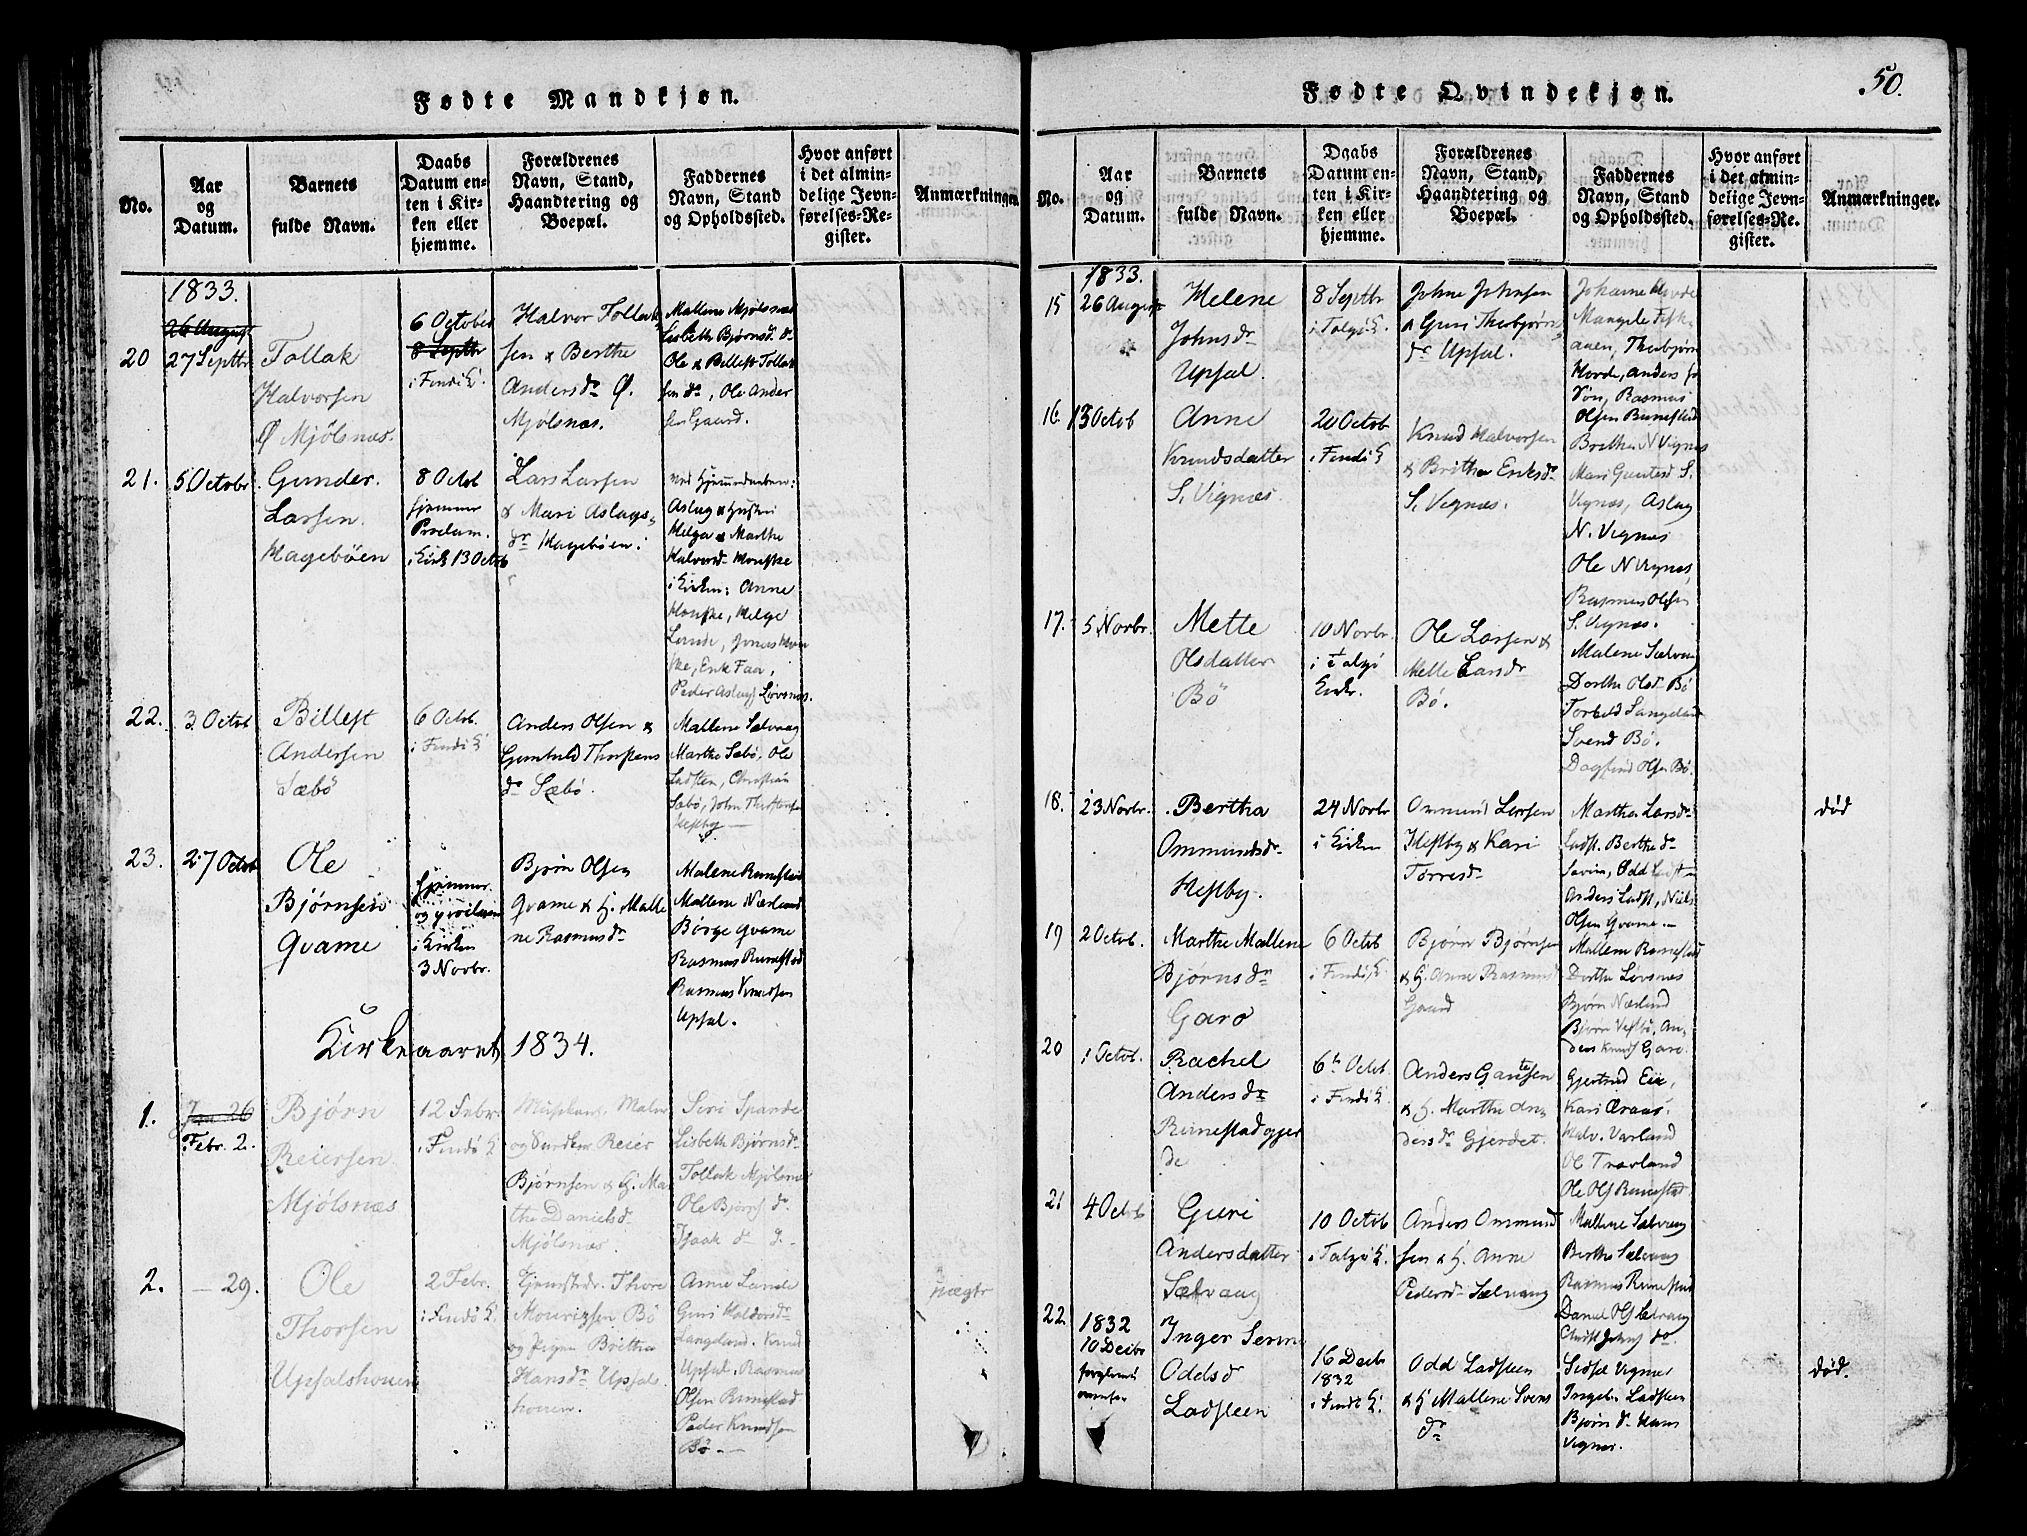 Fødte Mandkjøn.
No.
Aar og Datum.
Barnets fulde Navn.
Daabs Datum enten i Kirken eller hjemme.
Forældrenes Navn, Stand, Haandtering og Boepæl.
Faddernes Navn, Stand og Opholdssted.
Hvor anført i det almindelige Jevnførelses-Register.
Anmærkninger.
1833.
20
26 August
27 Septbr
Tollak
Halvorsen
Ø Mjölsnæs.
6 October
8 Septbr
i Findö K.
Halvor Tollak
sen & Berthe
Andersdr Ø.
Mjölsnæs.
Mallene Mjölsnæs
Lisbeth Bjørnsd. do
Ole & Billest Tollak
sen do, Ole Ander
sen Gaard.
21.
5 Octobr
Gunder
Larsen
Hagebøen
8 Octob
hjemme
Proclam.
i Kirk 13 Octob
Lars Larsen
& Mari Aslags
dr Hagebøen.
Ved Hjemmedaaben:
Aslag & Hustru
Helga & Marthe
Halvorsd. Houske
i Kirken: Anne
Houske, Helge
Lunde, Jonas Hou
ske, Erik Faa,
Peder Aslags Lövsnæs.
22.
3 Octob
Billest
Andersen
Sæbö
6 Octb.
i Findö K
Anders Olsen &
Gunhild Thorstens
dr Sæbö.
Mallene Sælvaag
Marthe Sæbö, Ole
Ladsten, Christian
Sæbö, John Thorstensen
Hestby —
23.
27 Octob
Ole
Bjørnsen
Qvame
hjemme
i Kirken
3 Novbr.
Bjørn Olsen
Qvame & H. Malle
ne Rasmusdr
Malene Runestad
Mallene Nærland
Børge Qvame
Rasmus Runestad
Rasmus Knudsen
Upsal.
Kirkeaaret 1834.
1.
Jan 26
Febr. 2.
Bjørn
Reiersen
Mjølsnæs
12 Febr.
i Findö K
Huusmand
og Reier
Bjørnsen & H. Mar
the Danielsdr
Mjølsnæs.
Siri Spande
Lisbeth Bjørnsdr
Tollak Mjölsnæs
Ole Bjørns do
Isaak do
2.
— 29.
Ole
Thorsen
Upsalshouen
2 Febr.
i Findö K.
Thore
Mouritzsen Bö
og Pigen Britha
Hansdr Upsals
houen.
Anne Lande
Guri Haldorsdr
Langeland. Knud
Upsal. Rasmus
Olsen Runestad
Peder Knudsen
Bö —
uægte
Fødte Qvindekjøn.
50.
No.
Aar og Datum.
Barnets fulde Navn.
Daabs Datum enten i Kirken eller hjemme.
Forældrenes Navn, Stand, Haandtering og Boepæl.
Faddernes Navn, Stand og Opholdssted.
Hvor anført i det almindelige Jevnførelses-Register.
Anmærkninger.
1833.
15
26 August
Helene
Johnsdr
Upsal.
8 Septbr
i Talgö K.
Johne Johnsen
& Guri Thorbjørns
dr Upsal.
Johanne Hovde
Mangele Fisk
aaen, Thorbjørn
Hovde, Anders
Rasmus
Olsen Runestad
16.
13 Octob
Anne
Knudsdatter
S. Vignæs.
20 Octob
i Findö K
Knud Halvorsen
& Britha Eriksdr
S. Vignæs.
Britha N Vignæs
Mari S.
Vignæs, Aslag
N. Vignæs
Ole N Vignæs,
Rasmus Olsen
S. Vignæs.
17.
5 Novbr.
Mette
Olsdatter
Bö
10 Novbr.
i Talgö
Kirke.
Ole Larsen &
Mette Larsdr
Bö.
Malene Sælvaag
Dorthe Olsd. Bö
Torbild Langeland
Svend Bö.
Dagfind Olsen Bö.
18.
23 Novbr.
Bertha
Ommundsdr
Hestby.
24 Novbr
i Kirken
Ommund Larsen
Hestby & Kari
Torresdr
Martha Larsdr
Ladst. Berthe do
Odd Ladst
Anders Ladst, Niels
Olsen Qvame.—
död
19
2 Octob.
Marthe Mallene
Bjørnsdr
Garo
6 Octob
i Findö K.
Bjørn Bjørnsen
& H. Anne Rasmusd
Gaard
Mallene Runestad
Dorthe Lövsnæs
Bjørn Nærland
Bjørn Vestbö, An-
ders Knuds Garo.
20
1 Octob.
Rachel
Andersdr
Runestadgjer
de
6te Octob.
i Findö K.
Anders Gautesen
& H. Marthe An
dersdr Gjerdet.
Gjertrud Eie,
Kari Araas.
Halv. Varland
Ol Travland
Ole Ols Runestad
21
4 Octob
Guri
Andersdatter
Sælvaag
10 Octob
i Talgö K.
Anders Ommund
sen & H. Anne
Pedersdr Sælvaag
Mallene Sælvaag
Berthe Sælvaag
Rasmus Runestad
Daniel Ols Sælvaag
Christ Johns do
22.
1832
10 Decbr
forglemt
Inger Serine
Oddsd
Ladsteen
16 Decbr
1832
i Findö K.
Odd Ladsteen
& H Mallene Svens
dr
Sidsel Vignæs
Ingeb. Ladsteen
Bjørn do Hans
Vignæs.
död.